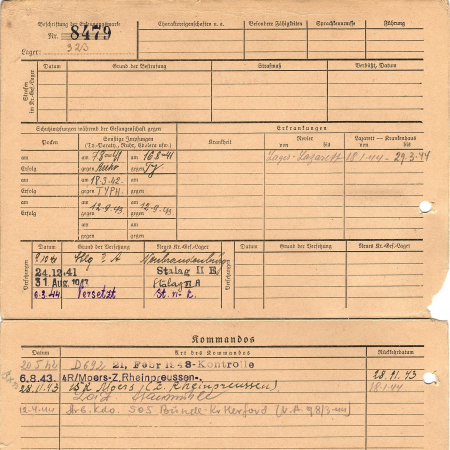 Beschriftung der Erkennungsmarke
Nr. 8479
Lager: 323
Charaktereigenschaften u. a.
Besondere Fähigkeiten
Sprachkenntnisse
Führung
Strafen im Kr.-Gef.-Lager
Datum
Grund der Bestrafung
Strafmaß
Verbüßt, Datum
Schutzimpfungen während der Gefangenschaft gegen
Erkrankungen
Pocken
Sonstige Impfungen
(Ty.-Paraty., Ruhr, Cholera usw.)
Krankheit
Revier
von bis
Lazarett — Krankenhaus
von bis
am am am 16.8.41
Erfolg gegen Ruhr gegen Ty
Lager-Lazarett 18.1.44 - 29.3.44
am am 18.3.42. am
Erfolg gegen TYPH. gegen
am am 12.9.43 am 12.9.43
Erfolg gegen gegen
am am am
gegen gegen
Versetzungen
Datum
Grund der Versetzung
Neues Kr.-Gef.-Lager
Versetzungen
Datum
Grund der Versetzung
Neues Kr.-Gef.-Lager
Neubrandenburg
24.12.41 Stalag II E
31. Aug. Stalag II A
6.3.44 Versetzt
Kommandos
Datum
Art des Kommandos
Rückkehrdatum
D692 21. Febr. -Kontrolle
6.8.43. 4R/Moers-Z.Rheinpreussen-. 28.11.43
28.11.43 15R Moers (Z. Rheinpreussen) 18.1.44
12.4.44 Arb.Kdo. 505 Bünde-Kr Herford